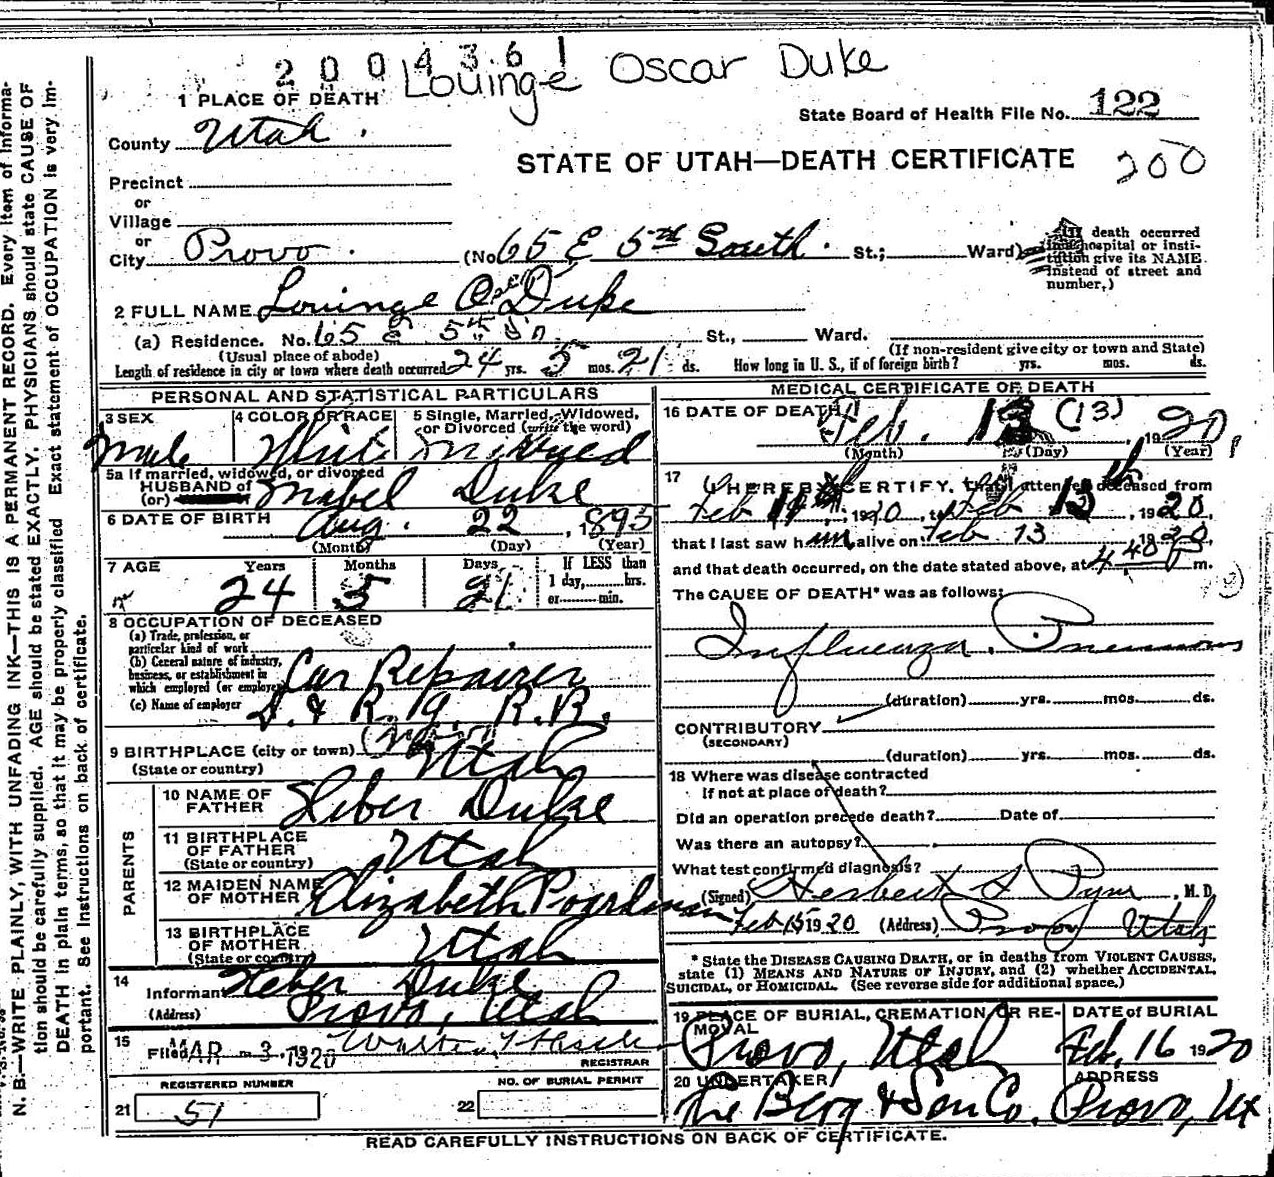 2004361
Louinge Oscar Duke
1 PLACE OF DEATH
State Board of Health File No. 122
County Utah.
STATE OF UTAH—DEATH CERTIFICATE
200
Precinct
or
Village
or
City Provo. (No. 65 E 5th South. St.; Ward)
(If death occurred in a hospital or institution give its NAME instead of street and number.)
2 FULL NAME Louinge Oscar Duke
(a) Residence. No. 65 E 5th So St., Ward.
(Usual place of abode) (If non-resident give city or town and State)
Length of residence in city or town where death occurred 24 yrs. 5 mos. 21 ds. How long in U. S., if of foreign birth? yrs. mos. ds.
PERSONAL AND STATISTICAL PARTICULARS
3 SEX
Male
4 COLOR OR RACE
White
5 Single, Married, Widowed, or Divorced (write the word)
5a If married, widowed, or divorced
HUSBAND of
(or)
Mabel Duke
6 DATE OF BIRTH Aug. 22, 1895
(Month) (Day) (Year)
7 AGE Years Months Days If LESS than
1 day, hrs.
or min.
24 5 21
8 OCCUPATION OF DECEASED
(a) Trade, profession, or
particular kind of work
(b) General nature of industry,
business, or establishment in
which employed (or employer) Car Repairer
(c) Name of employer D. & R. G. R.R.
9 BIRTHPLACE (city or town)
(State or country) Utah
PARENTS
10 NAME OF FATHER Heber Duke
11 BIRTHPLACE OF FATHER
(State or country) Utah
12 MAIDEN NAME OF MOTHER Elizabeth
13 BIRTHPLACE OF MOTHER
(State or country) Utah
14
Informant Heber Duke
(Address) Provo, Utah
15
Filed MAR - 3 1920
REGISTRAR
REGISTERED NUMBER
21 51
NO. OF BURIAL PERMIT
22
MEDICAL CERTIFICATE OF DEATH
16 DATE OF DEATH Feb. 13 (13), 1920,
(Month) (Day) (Year)
17 I HEREBY CERTIFY, that I attended deceased from
Feb 1920, to Feb 13th, 1920,
that I last saw him alive on Feb 13 1920,
and that death occurred, on the date stated above, at 4 40 P m.
The CAUSE OF DEATH* was as follows:
Influenza. Pneumonia
(duration) yrs. mos. ds.
CONTRIBUTORY
(SECONDARY)
(duration) yrs. mos. ds.
18 Where was disease contracted
If not at place of death?
Did an operation precede death? Date of
Was there an autopsy?
What test confirmed diagnosis?
(Signed) Herbert S Pyne, M. D.
Feb 15 1920 (Address) Provo Utah
* State the DISEASE CAUSING DEATH, or in deaths from VIOLENT CAUSES,
state (1) MEANS AND NATURE OF INJURY, and (2) whether ACCIDENTAL,
SUICIDAL, or HOMICIDAL. (See reverse side for additional space.)
19 PLACE OF BURIAL, CREMATION, OR REMOVAL
Provo, Utah
DATE of BURIAL
Feb. 16 1920
20 UNDERTAKER
The Berg & Son Co.
ADDRESS
Provo, Ut
READ CAREFULLY INSTRUCTIONS ON BACK OF CERTIFICATE.
N. B.—WRITE PLAINLY, WITH UNFADING INK—THIS IS A PERMANENT RECORD. Every item of information should be carefully supplied. AGE should be stated EXACTLY. PHYSICIANS should state CAUSE OF DEATH in plain terms, so that it may be properly classified. Exact statement of OCCUPATION is very important. See instructions on back of certificate.